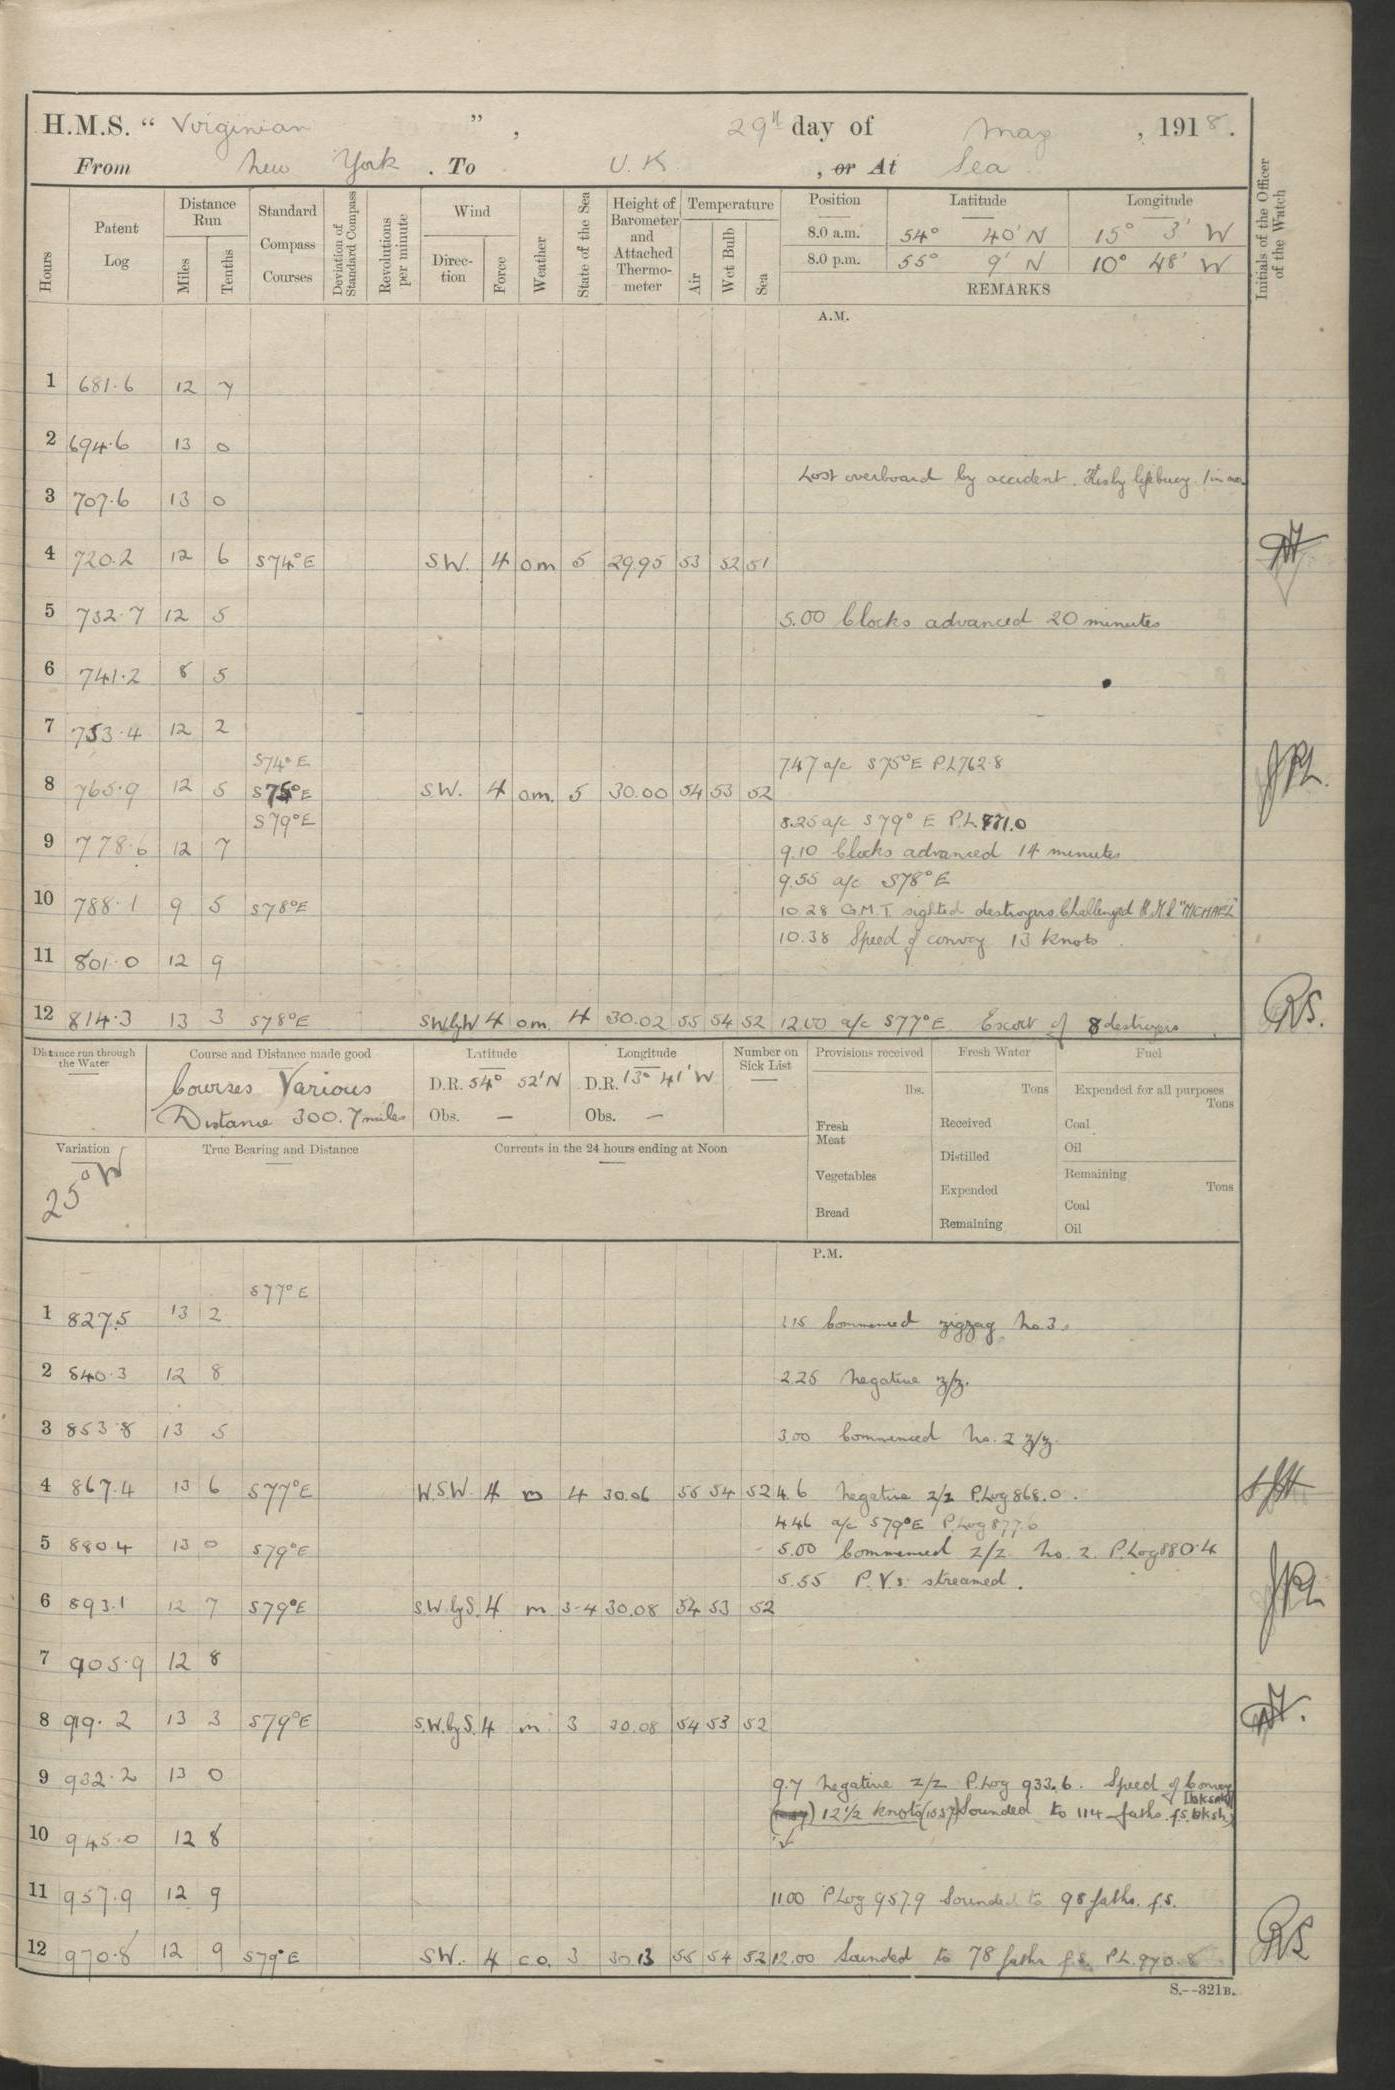 H.M.S. " Virginian ", 29th day of May, 1918.
From New York. To U.K, or At Sea
Hours
Patent Log
Distance Run
Miles
Tenths
Standard Compass Courses
Deviation of Standard Compass
Revolutions per minute
Wind
Direction
Force
Weather
State of the Sea
Height of Barometer and Attached Thermometer
Temperature
Air
Wet Bulb
Sea
Position Latitude Longitude
8.0 a.m. 54° 40' N 15° 3' W
8.0 p.m. 55° 9' N 10° 48' W
REMARKS
Initials of the Officer of the Watch
A.M.
1 681.6 12 7
2 694.6 13 0
Lost overboard by accident. Kisby lifebuoy. 1 in no
3 707.6 13 0
4 720.2 12 6 S74°E SW. 4 om 5 29.95 53 52 51
5 732.7 12 5 5.00 Clocks advanced 20 minutes
6 741.2 8 5
7 753.4 12 2
S74°E 7.47 a/c S75°E P.L 762.8
8 765.9 12 5 S75°E SW. 4 om. 5 30.00 54 53 52
S79°E 8.25 a/c S79°E P.L 771.0
9 778.6 12 7 9.10 Clocks advanced 14 minutes
9.55 a/c S78°E
10 788.1 9 5 S78°E 10.28 G.M.T. sighted destroyers. Challenged H.M.S "MICHAEL"
10.38 Speed of convoy 13 knots.
11 801.0 12 9
12 814.3 13 3 S78°E SWbyW 4 om. 4 30.02 55 54 52 12.00 a/c S77°E Escort of 8 destroyers
Distance run through the Water
Course and Distance made good
Courses Various
Distance 300.7 miles
Latitude
D.R. 54° 52' N
Obs. —
Longitude
D.R. 13° 41' W
Obs. —
Number on Sick List
Provisions received
lbs.
Fresh Meat
Vegetables
Bread
Fresh Water
Tons
Received
Distilled
Expended
Remaining
Fuel
Expended for all purposes
Tons
Coal
Oil
Remaining
Tons
Coal
Oil
Variation
25° W
True Bearing and Distance
Currents in the 24 hours ending at Noon
P.M.
S77°E
1 827.5 13 2 1.15 Commenced zigzag No 3.
2 840.3 12 8 2.25 Negative z/z.
3 853.8 13 5 3.00 Commenced No. 2 z/z.
4 867.4 13 6 S77°E W.S.W. 4 m 4 30.06 55 54 52 4.6 Negative z/z P.Log 868.0.
4.46 a/c S79°E P.Log 877.6
5 880.4 13 0 S79°E 5.00 Commenced z/z No. 2. P.Log 880.4
5.55 P.V.s. streamed.
6 893.1 12 7 S79°E S.W.byS. 4 m 3-4 30.08 54 53 52
7 905.9 12 8
8 919.2 13 3 S79°E S.W.byS. 4 m 3 30.08 54 53 52
9 932.2 13 0 9.7 Negative z/z P.Log 933.6. Speed of Convoy
12½ knots (10.37) Sounded to 114 faths. f.s. bk sh)
10 945.0 12 8
11 957.9 12 9 11.00 P Log 957.9 Sounded to 98 faths. f.s.
12 970.8 12 9 S79°E SW. 4 c.o. 3 30.13 55 54 52 12.00 Sounded to 78 faths f.s. P.L. 970.8
S.--321B.